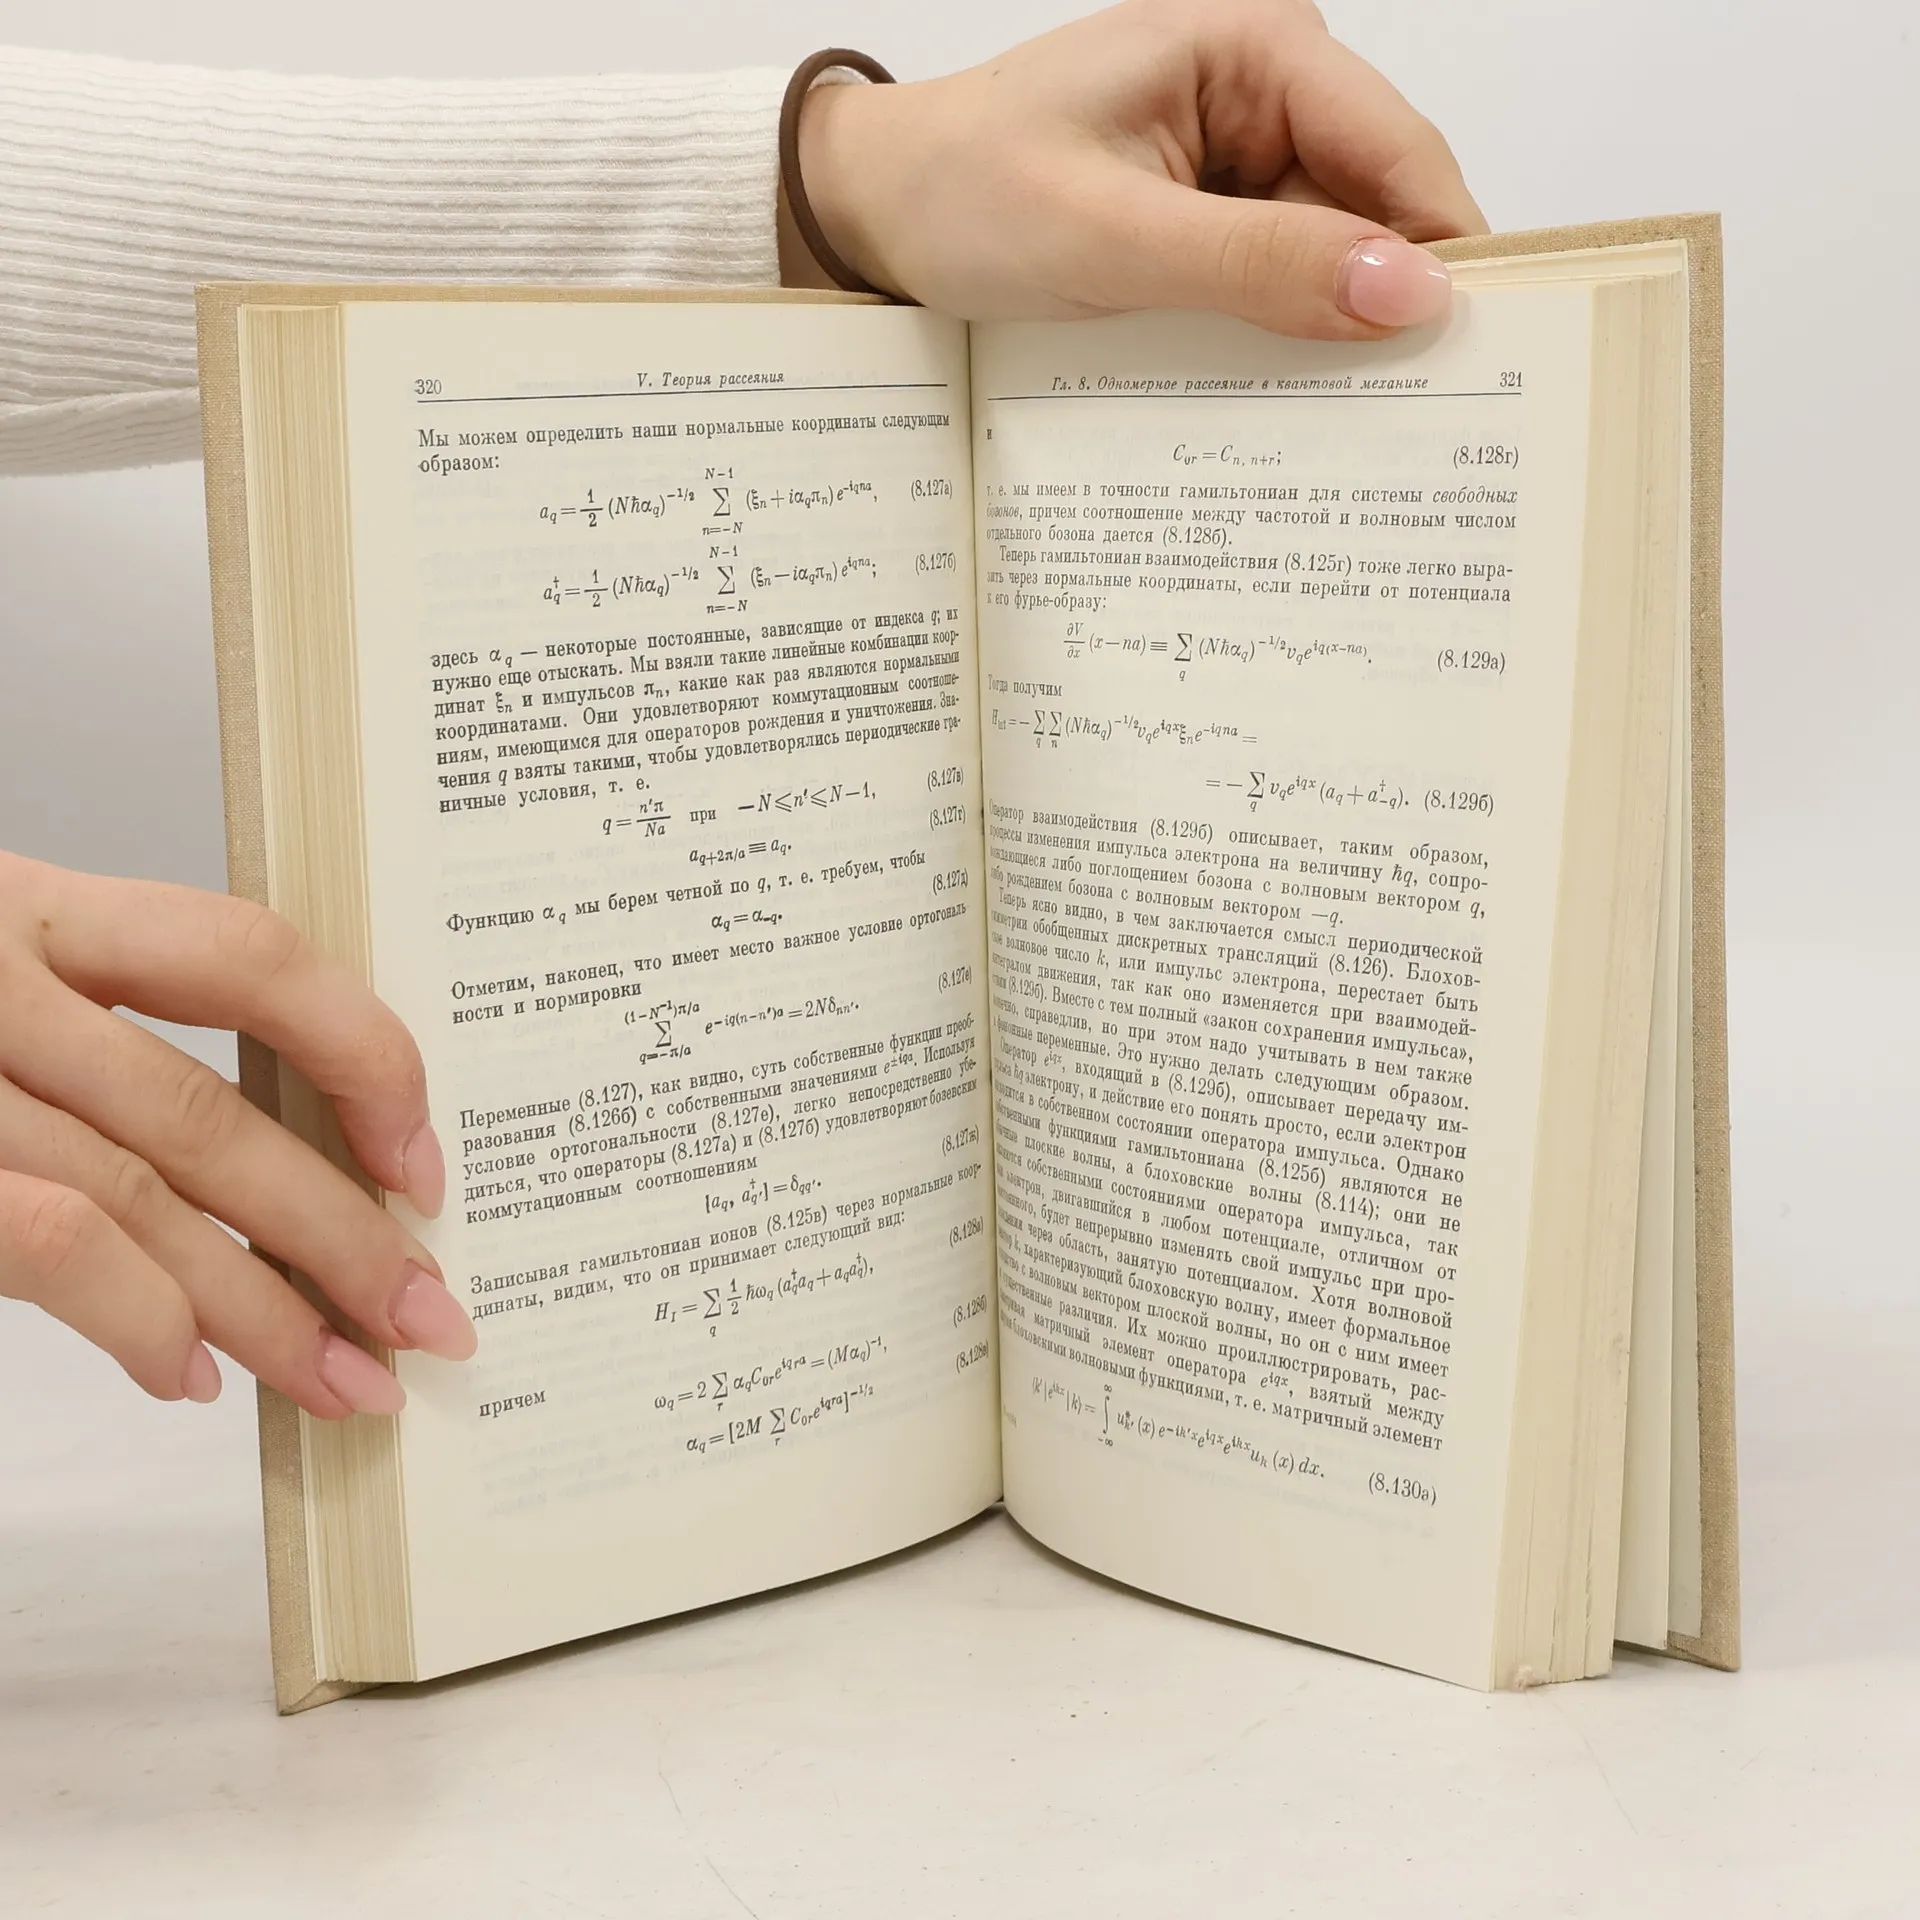 320
V. Теория рассеяния
Мы можем определить наши нормальные координаты следующим
образом:
a_q = 1/2 (Nħα_q)^{-1/2} ∑_{n=-N}^{N-1} (ξ_n + iα_qπ_n) e^{-iqna}, (8.127а)
a_q^† = 1/2 (Nħα_q)^{-1/2} ∑_{n=-N}^{N-1} (ξ_n − iα_qπ_n) e^{iqna}; (8.127б)
здесь α_q — некоторые постоянные, зависящие от индекса q; их
нужно еще отыскать. Мы взяли такие линейные комбинации коор-
динат ξ_n и импульсов π_n, какие как раз являются нормальными
координатами. Они удовлетворяют коммутационным соотноше-
ниям, имеющимся для операторов рождения и уничтожения. Зна-
чения q взяты такими, чтобы удовлетворялись периодические гра-
ничные условия, т. е.
q = n'π/Na при −N ⩽ n' ⩽ N−1, (8.127в)
a_{q+2π/a} ≡ a_q. (8.127г)
Функцию α_q мы берем четной по q, т. е. требуем, чтобы
α_q = α_{-q}. (8.127д)
Отметим, наконец, что имеет место важное условие ортогональ-
ности и нормировки
∑_{q=-π/a}^{(1-N^{-1})π/a} e^{-iq(n-n')a} = 2Nδ_{nn'}. (8.127е)
Переменные (8.127), как видно, суть собственные функции преоб-
разования (8.126б) с собственными значениями e^{±iqa}. Используя
условие ортогональности (8.127е), легко непосредственно убе-
диться, что операторы (8.127а) и (8.127б) удовлетворяют бозевским
коммутационным соотношениям
[a_q, a_{q'}^†] = δ_{qq'}. (8.127ж)
Записывая гамильтониан ионов (8.125в) через нормальные коор-
динаты, видим, что он принимает следующий вид:
H_I = ∑_q 1/2 ħω_q (a_q^†a_q + a_qa_q^†), (8.128а)
причем ω_q = 2 ∑_r α_qC_{0r}e^{iqra} = (Mα_q)^{-1}, (8.128б)
α_q = [2M ∑_r C_{0r}e^{iqra}]^{-1/2} (8.128в)
Гл. 8. Одномерное рассеяние в квантовой механике
321
и
C_{0r} = C_{n, n+r}; (8.128г)
т. е. мы имеем в точности гамильтониан для системы свободных
бозонов, причем соотношение между частотой и волновым числом
отдельного бозона дается (8.128б).
Теперь гамильтониан взаимодействия (8.125г) тоже легко выра-
зить через нормальные координаты, если перейти от потенциала
к его фурье-образу:
∂V/∂x (x − na) ≡ ∑_q (Nħα_q)^{-1/2}v_qe^{iq(x-na)}. (8.129а)
Тогда получим
H_{int} = −∑_q ∑_n (Nħα_q)^{-1/2}v_qe^{iqx}ξ_ne^{-iqna} =
= −∑_q v_qe^{iqx} (a_q + a_{-q}^†). (8.129б)
Оператор взаимодействия (8.129б) описывает, таким образом,
процессы изменения импульса электрона на величину ħq, сопро-
вождающиеся либо поглощением бозона с волновым вектором q,
либо рождением бозона с волновым вектором —q.
Теперь ясно видно, в чем заключается смысл периодической
симметрии обобщенных дискретных трансляций (8.126). Блохов-
ское волновое число k, или импульс электрона, перестает быть
интегралом движения, так как оно изменяется при взаимодей-
ствии (8.129б). Вместе с тем полный «закон сохранения импульса»,
конечно, справедлив, но при этом надо учитывать в нем также
фононные переменные. Это нужно делать следующим образом.
Оператор e^{iqx}, входящий в (8.129б), описывает передачу им-
пульса ħq электрону, и действие его понять просто, если электрон
находится в собственном состоянии оператора импульса. Однако
собственными функциями гамильтониана (8.125б) являются не
обычные плоские волны, а блоховские волны (8.114); они не
являются собственными состояниями оператора импульса, так
электрон, двигавшийся в любом потенциале, отличном от
постоянного, будет непрерывно изменять свой импульс при про-
хождении через область, занятую потенциалом. Хотя волновой
вектор k, характеризующий блоховскую волну, имеет формальное
сходство с волновым вектором плоской волны, но он с ним имеет
существенные различия. Их можно проиллюстрировать, рас-
сматривая матричный элемент оператора e^{iqx}, взятый между
блоховскими волновыми функциями, т. е. матричный элемент
⟨k' | e^{iqx} | k⟩ = ∫_{-∞}^{∞} u_{k'}^* (x) e^{-ik'x}e^{iqx}e^{ikx}u_k (x) dx. (8.130а)